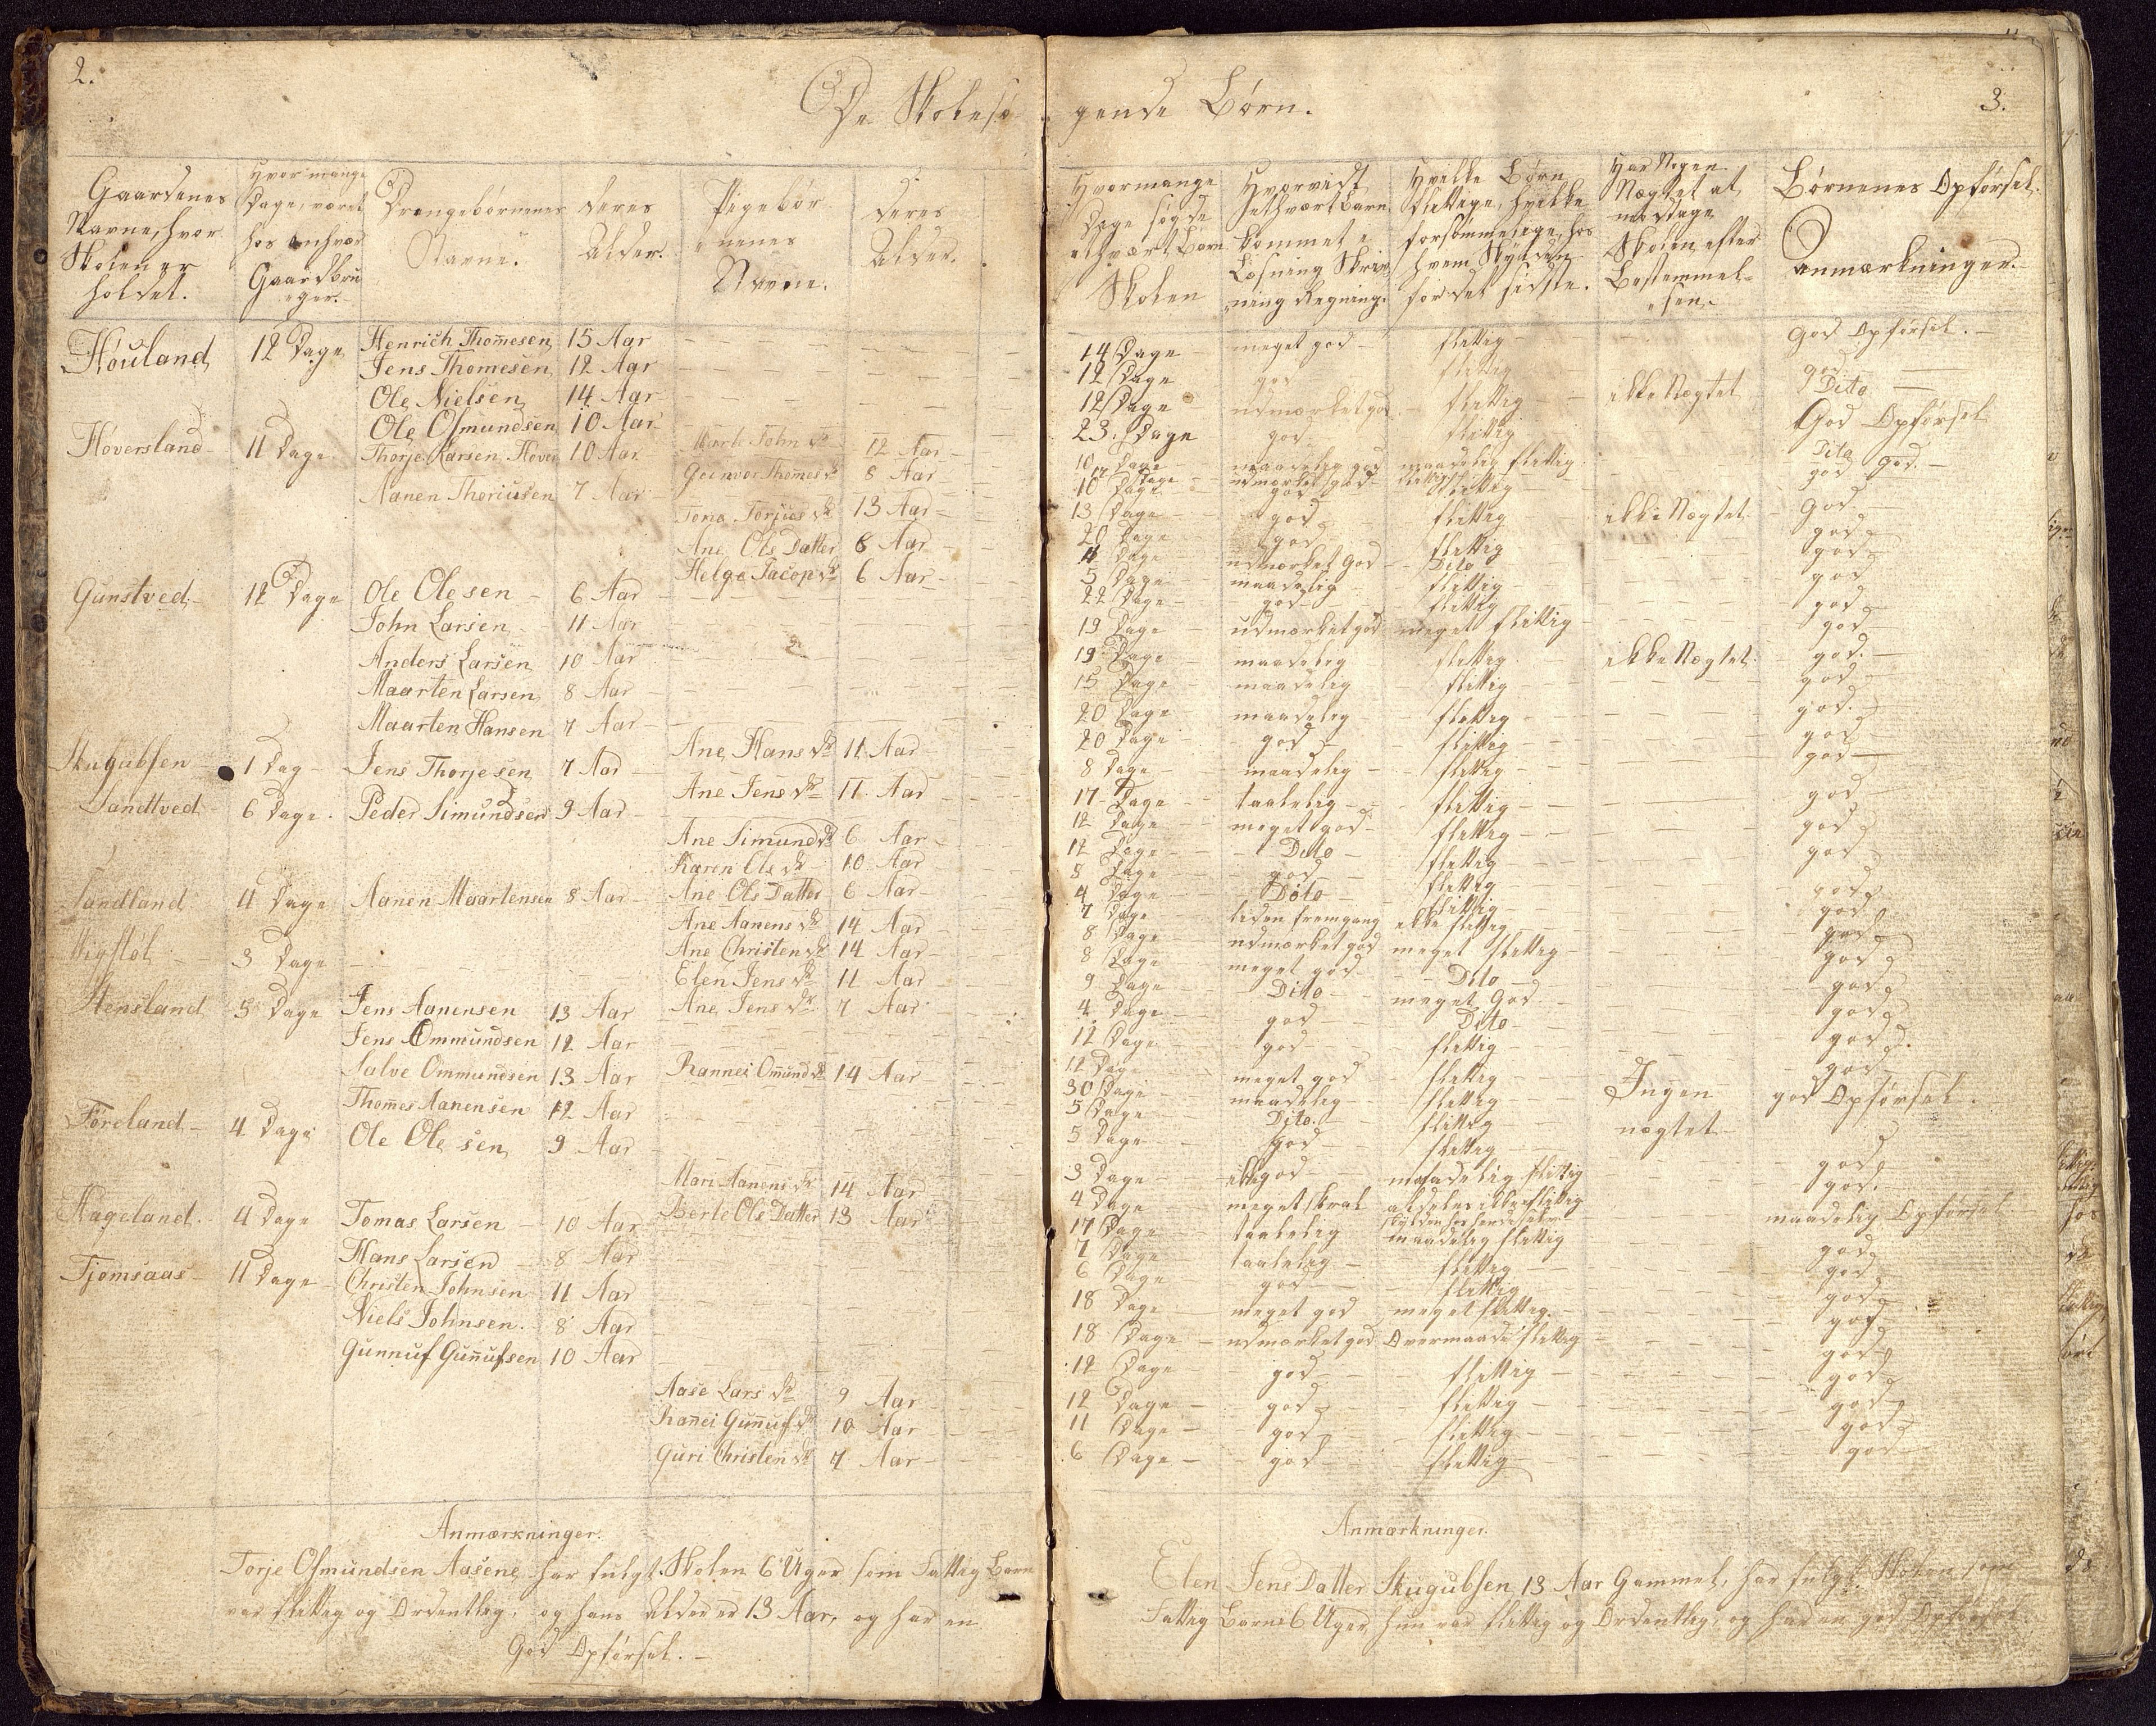 2.
De Skolesø
Gaardenes Navne, hvor Skolen er holdet.
Hvor mange Dage, været hos enhver Gaardbru eger.
Drengebørnenes Navne.
Deres Alder.
Pigebør nenes Navne.
Deres Alder.
Houland 12 Dage Henrich Thomesen 15 Aar
Jens Thomesen 12 Aar
Ole Nielsen 14 Aar
Ole Osmundsen 10 Aar
Høversland 11 Dage Thorje Larsen Høver 10 Aar John Dr 12 Aar
Gunvor Thomes Dr 8 Aar
Aanen Thoriusen 7 Aar
Tona Torjus Dr 13 Aar
Ane Ols Datter 8 Aar
Helge Jacop Dr 6 Aar
Gunstved 12 Dage Ole Olesen 6 Aar
John Larsen 11 Aar
Anders Larsen 10 Aar
Maarten Larsen 8 Aar
Maarten Hansen 7 Aar
Ane Hans Dr 11 Aar
Skugubsen 1 Dag Jens Thorjesen 7 Aar
Ane Jens Dr 11 Aar
Sandtved 6 Dage Peder Simundsen 9 Aar
Ane Simund Dr 6 Aar
Karen Ols Dr 10 Aar
Sandland 4 Dage Aanen Maartensen 8 Aar Ane Ols Datter 6 Aar
Ane Aanens Dr 14 Aar
3 Dage Ane Christen Dr 14 Aar
Elen Jens Dr 11 Aar
Stensland 5 Dage Jens Aanensen 13 Aar Ane Jens Dr 7 Aar
Jens Ommundsen 12 Aar
Salve Ommundsen 13 Aar Rannei Omund Dr 14 Aar
Thomes Aanensen 12 Aar
Føreland 4 Dage Ole Olesen 9 Aar
Mari Aanens Dr 14 Aar
Hageland 4 Dage Tomas Larsen 10 Aar Berte Ols Datter 13 Aar
Hans Larsen 8 Aar
Tjomsaas 11 Dage Christen Johnsen 11 Aar
Niels Johnsen 8 Aar
Gunnuf Gunnufsen 10 Aar
Aase Lars Dr 9 Aar
Rannei Gunnuf Dr 10 Aar
Guri Christen Dr 7 Aar
Anmærkninger.
Torje Osmundsen Aasene, har fulgt Skolen 6 Uger som Fattig Barn
var flittig og Ordentlig, og hans Alder er 13 Aar, og har en
God Opførsel.
3.
gende Børn.
Hvormange Dage søgde ethvært Børn Skolen
Hvorvidt Jethvært Barn kommet i Læsning Skriv ning Regning.
Hvilke Børn flittige, hvilke forsømmelige, hos hvem Skylden for det sidste.
Har Nogen Nægtet at modtage Skolen efter Bestemmel- sen.
Børnenes Opførsel.
Anmærkninger.
14 Dage meget god flittig God Opførsel.
12 Dage god flittig god
12 Dage udmærket god flittig ikke Nægtet Dito
23 Dage god flittig God Opførsel
10 Dage maadelig god maadelig flittig Dito
12 Dage udmærket god flittig god God.
10 Dage god flittig
13 Dage god flittig ikke Nægtet God
20 Dage god flittig god
11 Dage udmærket God Dito god
5 Dage maadelig flittig god
22 Dage god flittig god
19 Dage udmærket god meget flittig god
19 Dage maadelig flittig ikke Nægtet god
15 Dage maadelig flittig god
20 Dage maadelig flittig god
20 Dage god flittig god
8 Dage maadelig flittig god
17 Dage taalelig flittig god
12 Dage meget god flittig god
12 Dage Dito flittig god
8 Dage god flittig god
4 Dage Dito flittig god
7 Dage liden fremgang ikke flittig god
8 Dage udmærket god meget flittig god
8 Dage meget god Dito god
9 Dage Dito meget God god
4 Dage god Dito god
12 Dage god flittig god
12 Dage meget god flittig Ingen god Opførsel.
30 Dage maadelig flittig
5 Dage Dito flittig nægtet
5 Dage god flittig god
3 Dage ikke god maadelig flittig god
4 Dage meget skral aldeles ikke flittig maadelig Opførsel
17 Dage taalelig maadelig flittig god
7 Dage taalelig flittig god
6 Dage god flittig god
18 Dage meget god meget flittig god
18 Dage udmærket god Overmaade flittig god
12 Dage god flittig god
12 Dage god flittig god
11 Dage god flittig god
6 Dage god flittig god
Anmærkninger.
Elen Jens Datter Skugubsen 13 Aar Gammel, har fulgt Skolen som
Fattig Barn 6 Uger, hun var flittig og Ordentlig, og har en god Opførsel